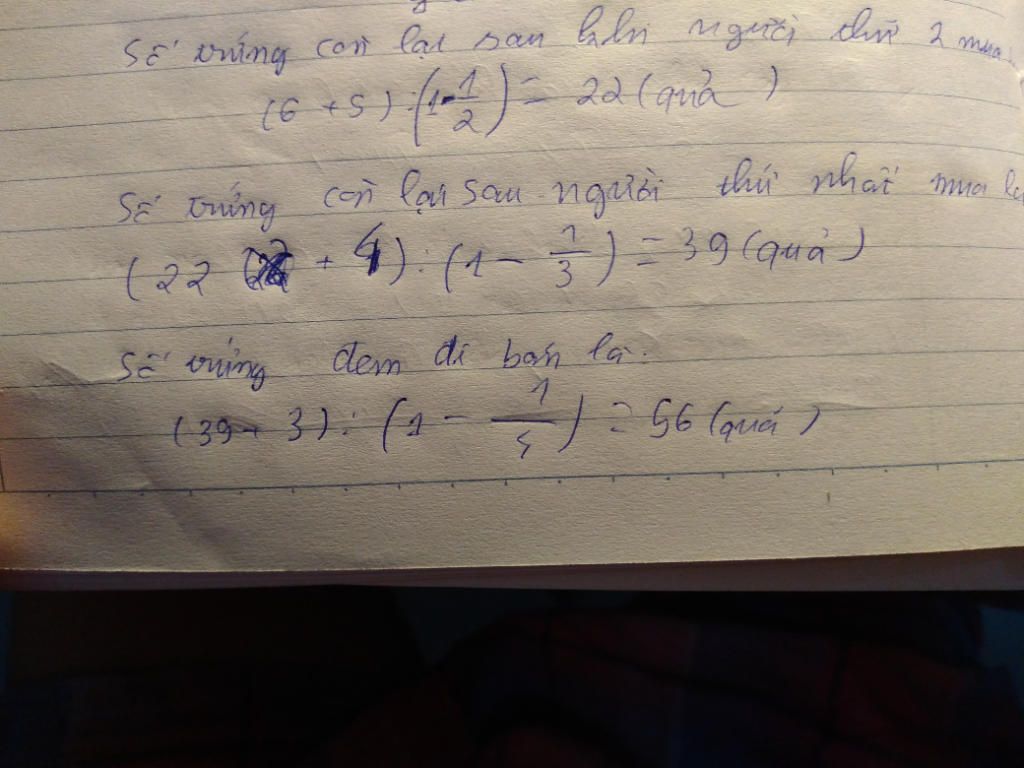 Số trứng còn lại sau khi người thứ 2 mua
(6 + 5) : (1 - 1/2) = 22 (quả)
Số trứng còn lại sau người thứ nhất mua là
(22 + 4) : (1 - 1/3) = 39 (quả)
Số trứng đem đi bán là:
(39 + 3) : (1 - 1/4) = 56 (quả)